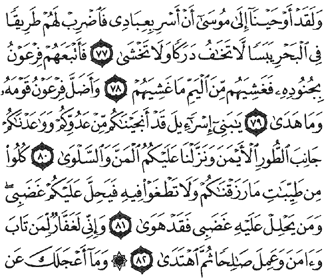 وَلَقَدْ أَوْحَيْنَا إِلَىٰ مُوسَىٰ أَنْ أَسْرِ بِعِبَادِى فَاضْرِبْ لَهُمْ طَرِيقًا
فِى الْبَحْرِ يَبَسًا لَّا تَخَافُ دَرَكًا وَلَا تَخْشَىٰ ٧٧ فَأَتْبَعَهُمْ فِرْعَوْنُ
بِجُنُودِهِ فَغَشِيَهُم مِّنَ الْيَمِّ مَا غَشِيَهُمْ ٧٨ وَأَضَلَّ فِرْعَوْنُ قَوْمَهُ
وَمَا هَدَىٰ ٧٩ يَٰبَنِىٓ إِسْرَٰٓءِيلَ قَدْ أَنجَيْنَٰكُم مِّنْ عَدُوِّكُمْ وَوَٰعَدْنَٰكُمْ
جَانِبَ الطُّورِ الْأَيْمَنَ وَنَزَّلْنَا عَلَيْكُمُ الْمَنَّ وَالسَّلْوَىٰ ٨٠ كُلُوا
مِن طَيِّبَٰتِ مَا رَزَقْنَٰكُمْ وَلَا تَطْغَوْا فِيهِ فَيَحِلَّ عَلَيْكُمْ غَضَبِى ۖ
وَمَن يَحْلِلْ عَلَيْهِ غَضَبِى فَقَدْ هَوَىٰ ٨١ وَإِنِّى لَغَفَّارٌ لِّمَن تَابَ
وَءَامَنَ وَعَمِلَ صَٰلِحًا ثُمَّ اهْتَدَىٰ ٨٢ ۞ وَمَآ أَعْجَلَكَ عَن